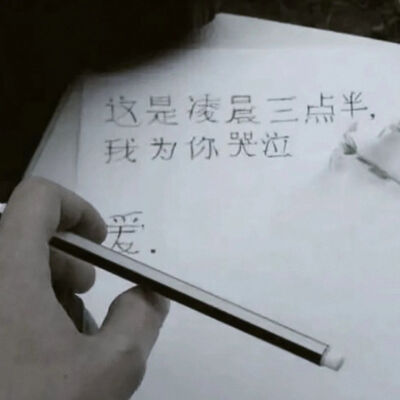 这是凌晨三点半,
我为你哭泣
爱.